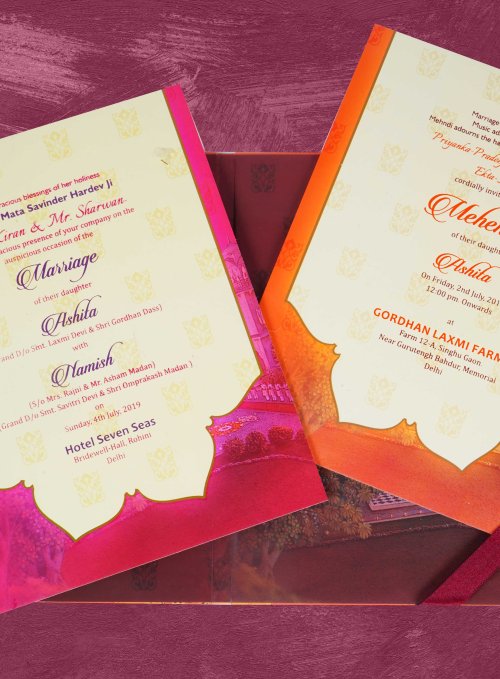 gracious blessings of her holiness
Mata Savinder Hardev Ji
Kiran & Mr. Sharwan
gracious presence of your company on the
auspicious occasion of the
Marriage
of their daughter
Ashita
(Grand D/o Smt. Laxmi Devi & Shri Gordhan Dass)
with
Hamish
(S/o Mrs. Rajni & Mr. Asham Madan)
(Grand D/o Smt. Savitri Devi & Shri Omprakash Madan )
on
Sunday, 4th July, 2019
Hotel Seven Seas
Bridewell-Hall, Rohini
Delhi
Marriage
Music ad
Mehndi adourns the ha
Priyanka Prada
Ekta
cordially invit
Mehen
of their daughter
Ashita
On Friday, 2nd July, 201
12:00 pm. Onwards
at
GORDHAN LAXMI FARM
Farm 12-A, Singhu Gaon
Near Gurutengh Bahdur, Memorial
Delhi